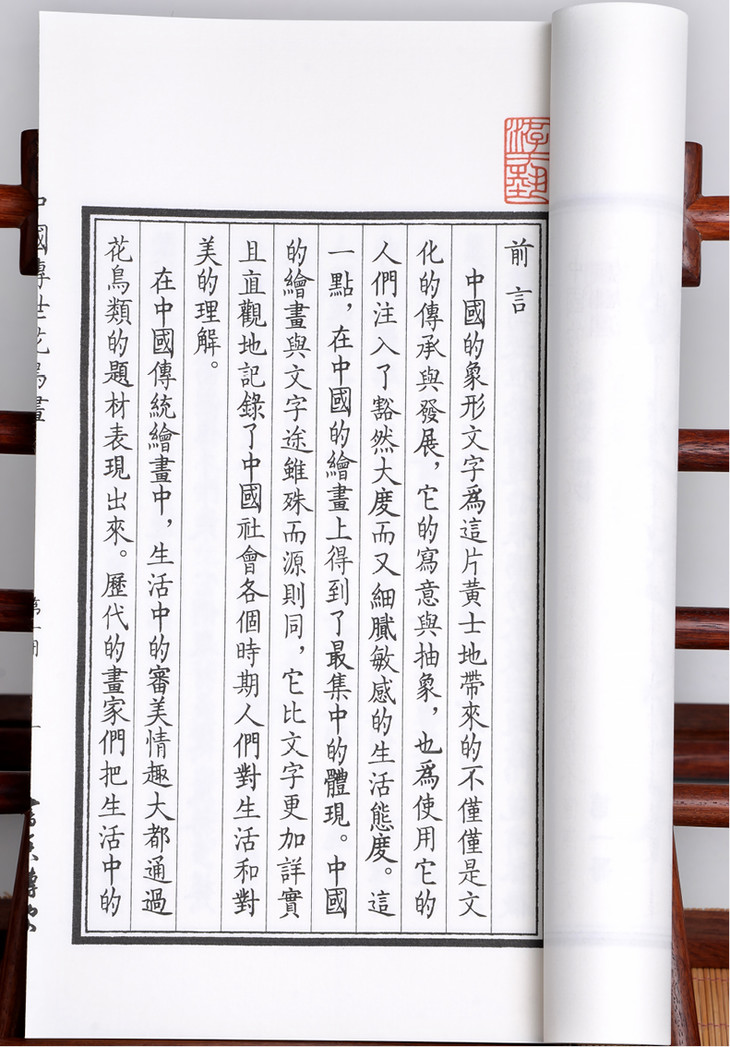 前言
中國的象形文字爲這片黃土地帶來的不僅僅是文
化的傳承與發展，它的寫意與抽象，也爲使用它的
人們注入了豁然大度而又細膩敏感的生活態度。這
一點，在中國的繪畫上得到了最集中的體現。中國
的繪畫與文字途雖殊而源則同，它比文字更加詳實
且直觀地記錄了中國社會各個時期人們對生活和對
美的理解。
在中國傳統繪畫中，生活中的審美情趣大都通過
花鳥類的題材表現出來。歷代的畫家們把生活中的
中國傳世花鳥畫